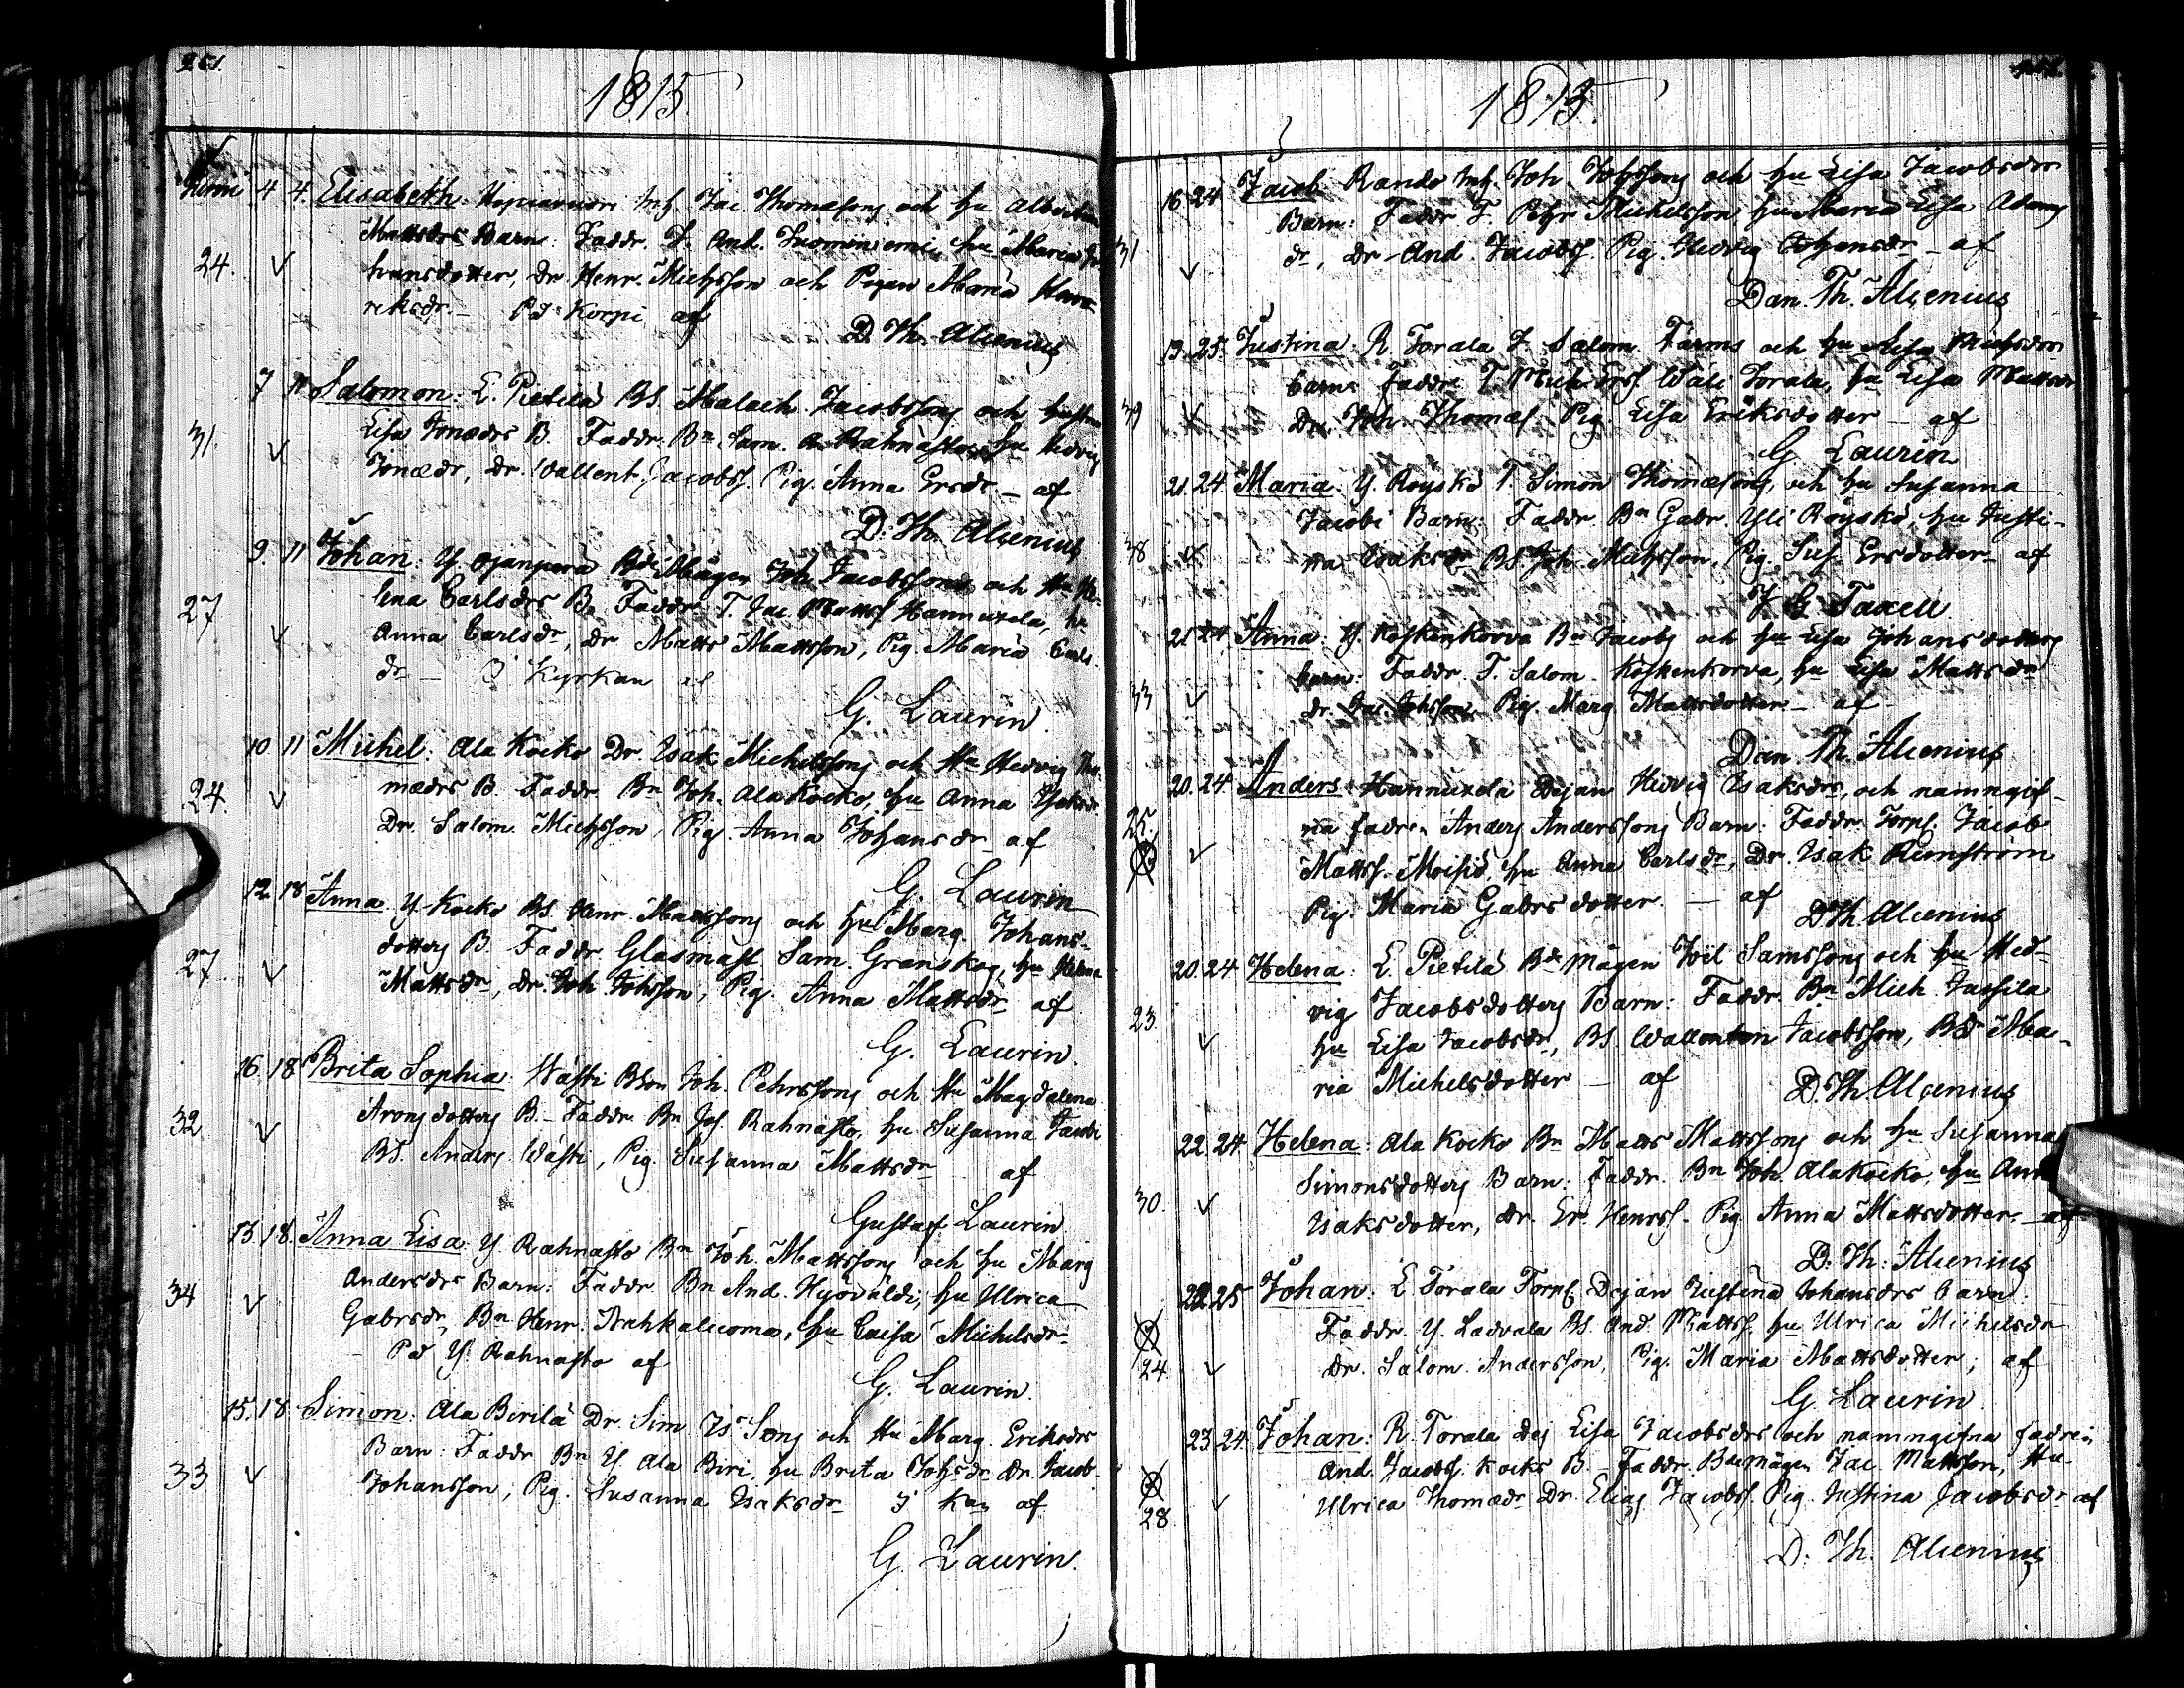 251.
1815.
4 4. Elisabeth: Inh. Jac. Thomæsons och hu Albertina
Mattsdrs Barn: Faddr. T. And. hu Maria Jo-
24. hansdotter, Dr. Henr. Michsson och Pigan Maria Hen-
riksdr. På Korpi af
D. Th. Alcenius
7 11 Salomon: L. Pietilä BS. Malach. Jacobssons och hustru
Lisa Jonædrs B. Faddr. Bn Sam. Rahnasto, hu Hedvig
31. Jonædr, Dr. Wallent. Jacobss. Pig. Anna Ersdr – af
D. Th. Alcenius
9. 11 Johan: Y. Ojanperä Bdemågen Joh. Jacobssons och Hu He-
lena Carlsdrs B. Faddr. T. Jac. Mattss. Hannuxela, hu
27 Anna Carlsdr, Dr Matts Mattsson, Pig. Maria Carls-
dr – I Kyrkan af
G. Laurin
10 11 Michel: Ala Kocko Dr. Isak Michelssons och Hu Hedvig Tho-
mædrs B. Faddr. Bn Joh. Alakocko, hu Anna Isaksdr.
24. Dr. Salom. Michsson, Pig. Anna Johansdr af
G. Laurin
12. 18 Anna Y. Kocko BS. Henr. Mattssons och hu Marg. Johans-
dotters B. Faddr. Glasmäst. Sam. Granskog, hu Helena
27 Mattsdr, Dr. Joh. Johsson, Pig. Anna Mattsdr af
G. Laurin.
16. 18 Brita Sophia: Wästi BSon Joh. Pehrssons och Hu Magdalena
Aronsdotters B. – Faddr. Bn Jos. Rahnasto, hu Susanna Jacobi
32 BS. Anders Wästi, Pig. Susanna Mattsdr af
Gustaf Laurin
13. 18. Anna Lisa Y. Rahnasto Bn Joh. Mattssons och hu Marg
Andersdrs Barn: Faddr. Bn And. Hyövälti, hu Ulrica
34 Gabrsdr, Bn Henr. Nahkaluoma, hu Caisa Michelsdr
– På Y. Rahnasto af
G. Laurin.
15. 18 Simon: Ala Birilä Dr. Sim. Is. Sons och Hu Marg. Eriksdrs
Barn: Faddr. Bn Y. Ala Biri, hu Brita Johsdr. Dr. Jacob
33 Johansson, Pig. Susanna Isaksdr I Kan af
G. Laurin.
1815.
16 24 Jacob Rando Inh. Joh. Johssons och hu Lisa Jacobsdrs
Barn: Faddr. T. Pehr Michelsson, hu Maria Lisa Adams
31 dr, Dr And. Jacobss. Pig. Hedvig Johansdr – af
Dan. Th. Alcenius
19. 25. Justina: R. Torala T. Salom. Tarms och hu Lisa Michsdrs
barn: Faddr. T. Mich. Erss. Wäli Torala, hu Lisa Mattsdr
39 Dr. Joh. Thomæs. Pig. Lisa Eriksdotter – af
G Laurin
21. 24 Maria: Y. Röyskö T. Simon Thomæsons, och hu Susanna
Jacobi Barn: Faddr. Bn Gabr. Yli Röyskö, hu Justi-
38 na Isaksdr BS. Joh. Michsson, Pig. Sus. Ersdotter – af
J G Taxell
21 24 Anna: Y. Koskenkorva Bn Jacobs och hu Lisa Johansdotters
barn: Faddr. T. Salom. Koskenkorva, hu Lisa Mattsdr
33 dr. Jac. Johsson, Pig. Marg. Mattsdotter – af
Dan. Th. Alcenius
20. 24. Anders: Hannuxela Dejan Hedvig Isaksdrs, och namngif-
25. na fadren Anders Anderssons Barn: Faddr. Torps. Jacob
Mattss. Moisio, hu Anna Carlsdr, Dr. Isak Renström
Pig. Maria Gabrsdotter – af
D Th. Alcenius
20. 24 Helena: L. Pietilä Bde mågen Joel Samssons och hu Hed-
vig Jacobsdotters Barn: Faddr. Bn Mich. Jassila
23. hu Lisa Jacobsdr, BS. Wallentin Jacobsson, BD Ma-
ria Michelsdotter – af
D. Th. Alcenius
22. 24. Helena: Ala Kocko Bn Matts Mattssons och hu Susanna
Simonsdotters Barn: Faddr. Bn Joh. Alakocko, hu Anna
30. Isaksdotter, Dr. Er. Henrss. Pig. Anna Mattsdotter – af
D. Th. Alcenius
22. 25 Johan: L Torala Torps. Dejan Justina Johansdrs barn
Faddr. Y. Ladvala BS. And. Mattss. hu Ulrica Michelsdr
24. Dr. Salom. Andersson, Pig. Maria Mattsdotter; af
G. Laurin.
23. 24. Johan: R. Torala Dej. Lisa Jacobsdrs och namngifna fadren
And. Jacobss. Kocko B. – Faddr. Bnemågen Jac. Mattsson, Hu
28. Ulrica Thomædr Dr. Elias Jacobss. Pig. Justina Jacobsdr af
D. Th. Alcenius